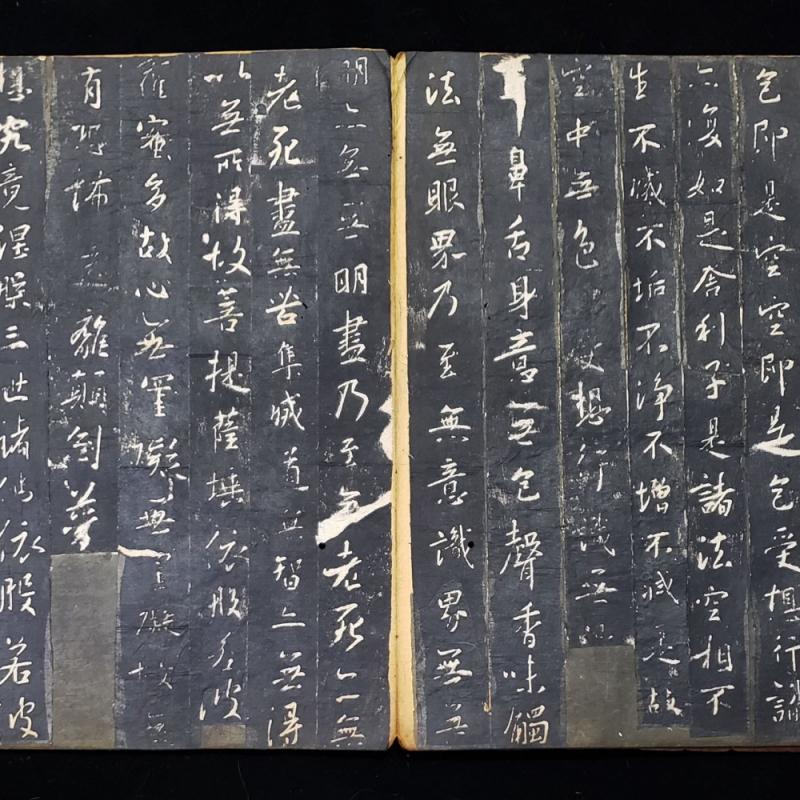 色即是空空即是色受想行識
亦復如是舍利子是諸法空相不
生不滅不垢不淨不增不減是故
空中無色 受想行識無眼
耳鼻舌身意無色聲香味觸
法無眼界乃至無意識界無無
明亦無無明盡乃至無老死亦無
老死盡無苦集滅道無智亦無得
以無所得故菩提薩埵依般若波
羅蜜多故心無罣礙無罣礙故無
有恐怖遠離顛倒夢
想究竟涅槃三世諸佛依般若波